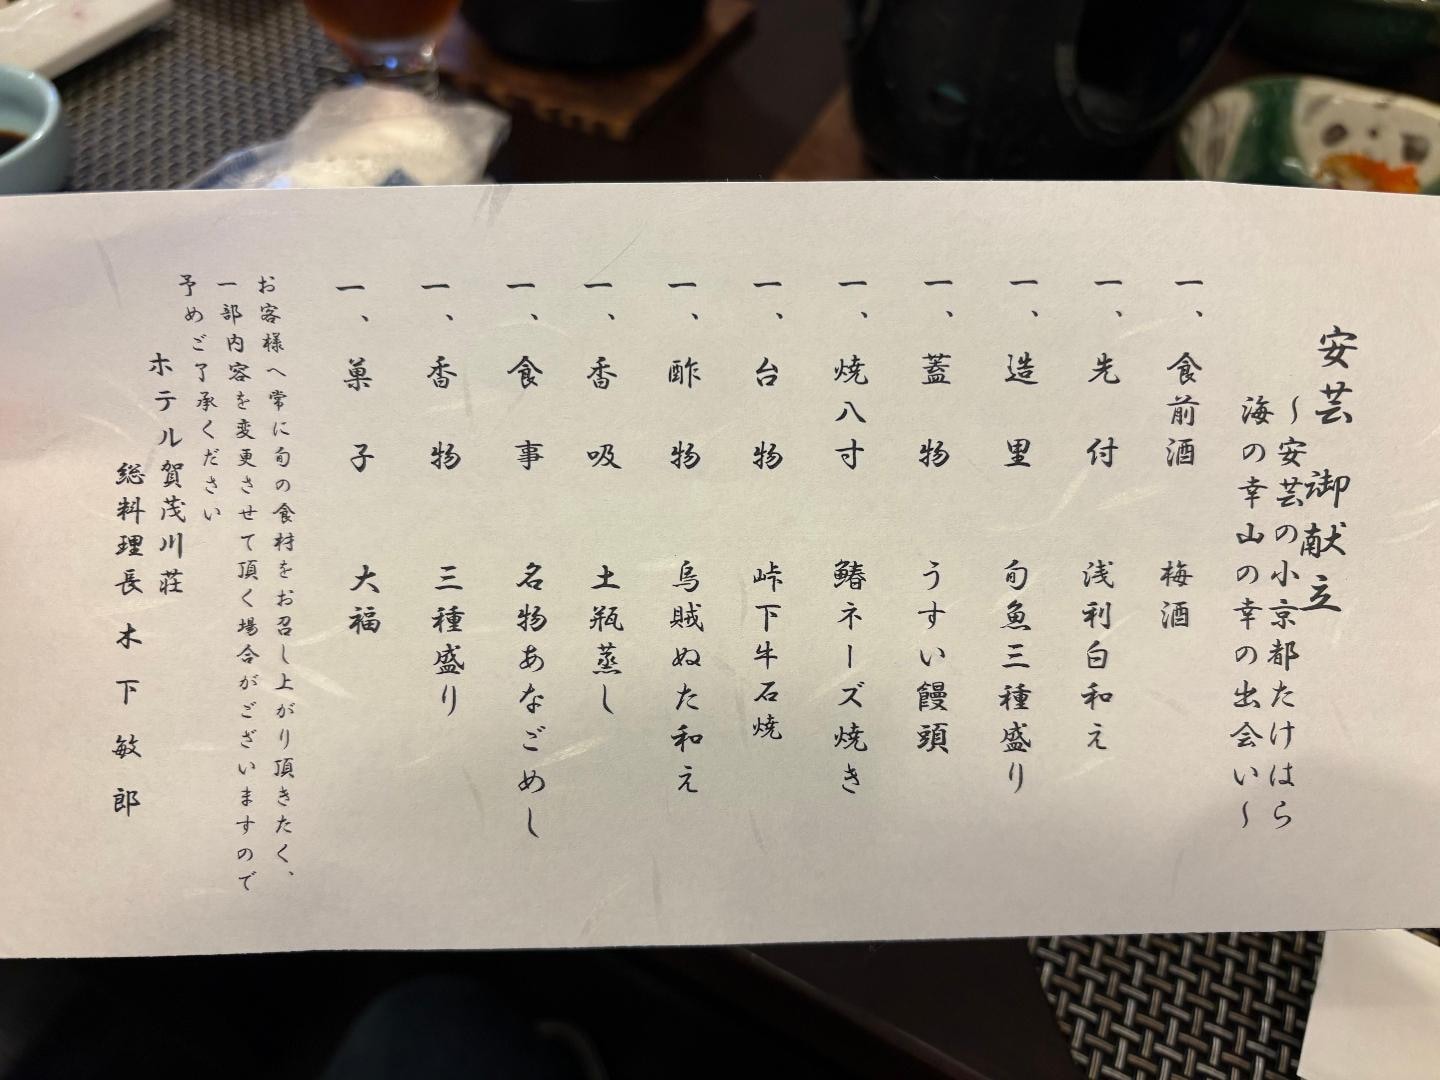 安芸 御献立
～安芸の小京都たけはら
海の幸山の幸の出会い～
一、食前酒 梅酒
一、先付 浅利白和え
一、造里 旬魚三種盛り
一、蓋物 うすい饅頭
一、焼八寸 鰆ネーズ焼き
一、台物 峠下牛石焼
一、酢物 烏賊ぬた和え
一、香吸 土瓶蒸し
一、食事 名物あなごめし
一、香物 三種盛り
一、菓子 大福
お客様へ常に旬の食材をお召し上がり頂きたく、
一部内容を変更させて頂く場合がございますので
予めご了承ください
ホテル賀茂川荘
総料理長 木下敏郎